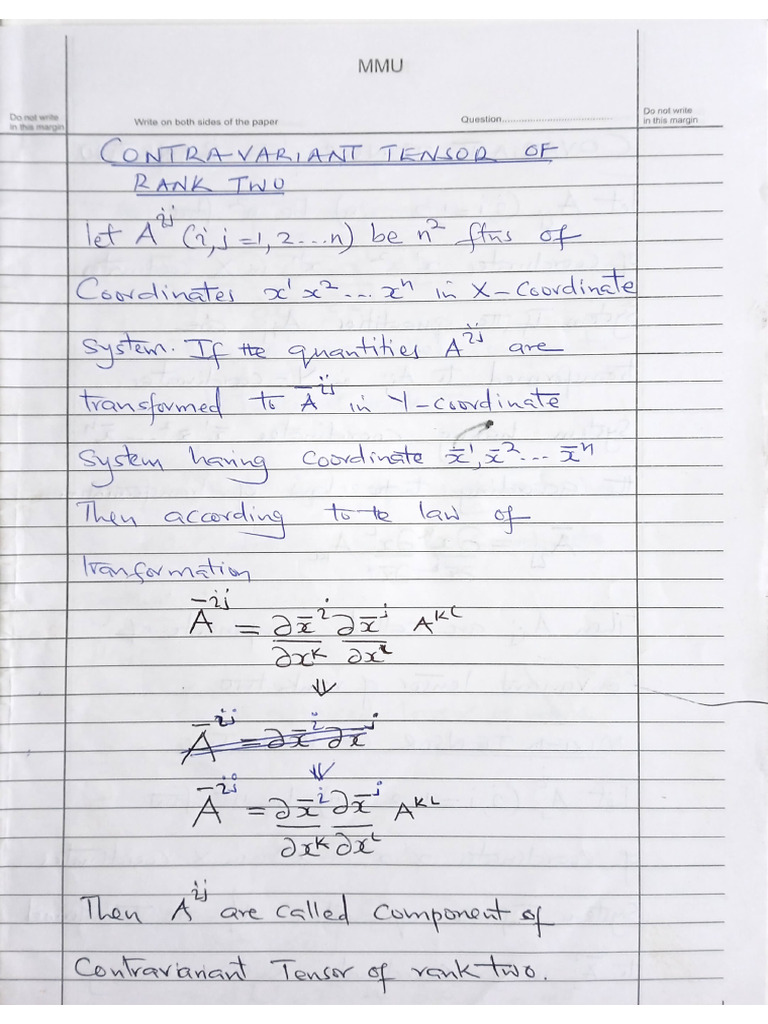 MMU
Do not write
in this margin
Write on both sides of the paper
Question........................................
Do not write
in this margin
CONTRAVARIANT TENSOR OF
RANK TWO
let A^{ij} (i,j = 1, 2 ... n) be n² ftns of
Coordinates x¹ x² ... xⁿ in X-Coordinate
System. If the quantities A^{ij} are
transformed to A̅^{ij} in Y-coordinate
System having coordinate x̅¹, x̅² ... x̅ⁿ
Then according to the law of
tranformation
A̅^{ij} = ∂x̅^i/∂x^k ∂x̅^j/∂x^l A^{kl}
⇓
A̅^{ij} = ∂x̅^i ∂x̅^j
⇓
A̅^{ij} = ∂x̅^i/∂x^k ∂x̅^j/∂x^l A^{kl}
Then A^{ij} are called component of
Contravariant Tensor of rank two.